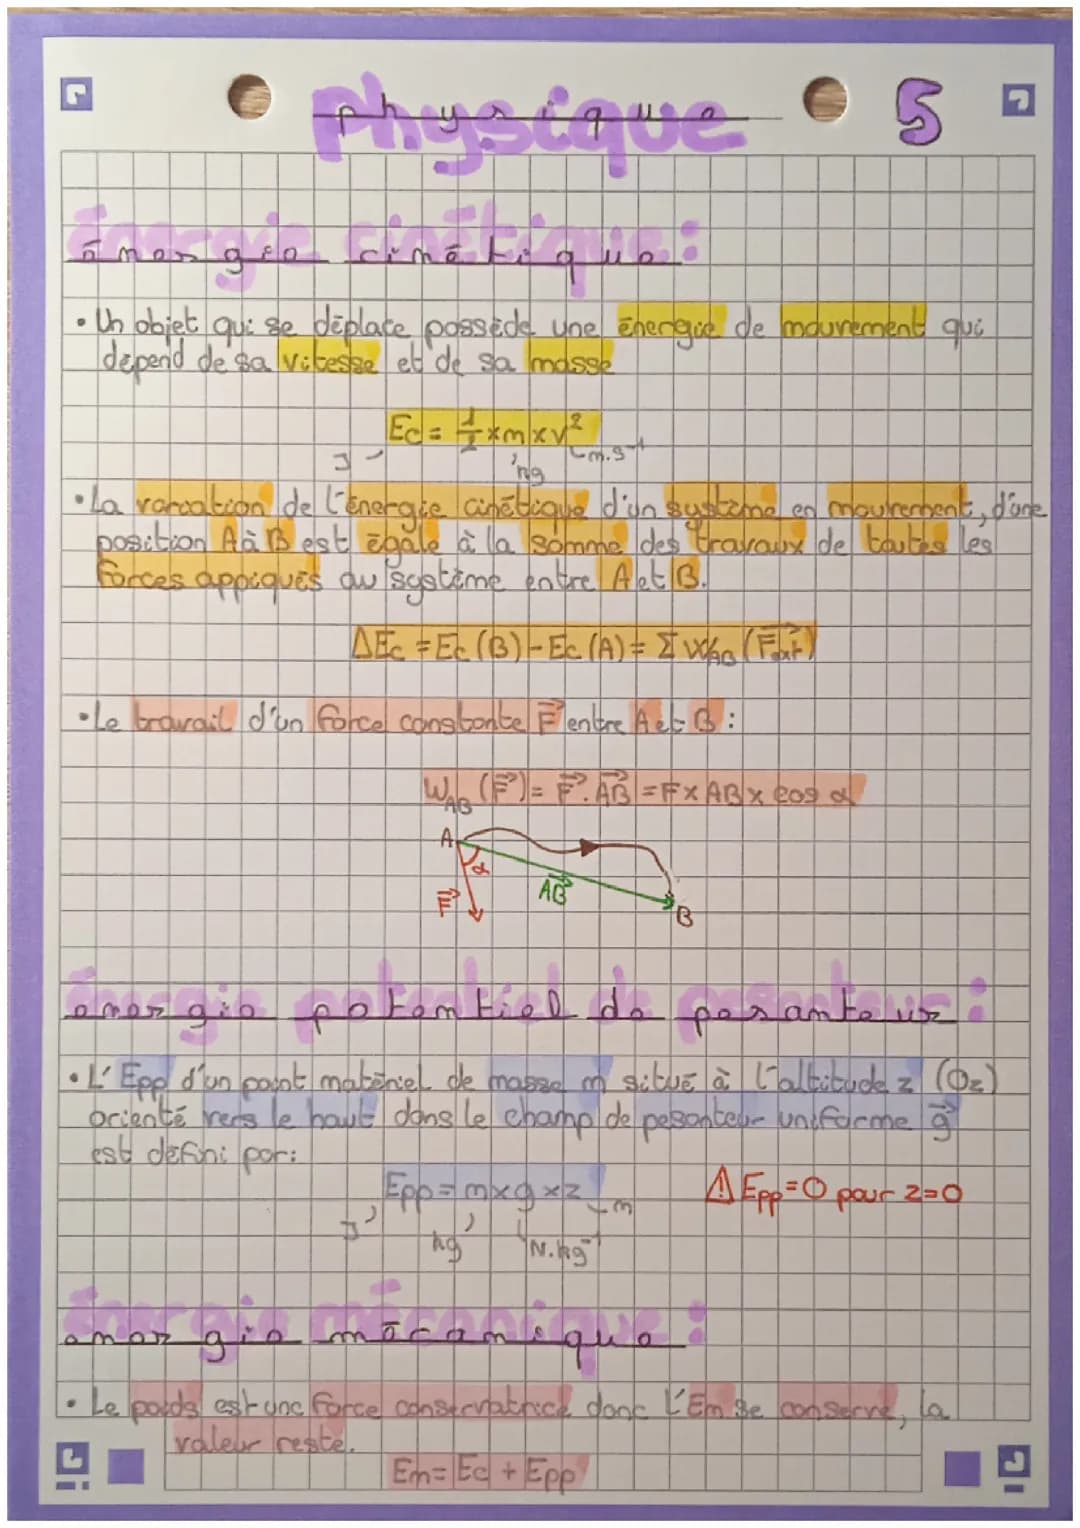 Physique 5
énergie cinétique :
• Un objet qui se déplace possède une énergie de mouvement qui
dépend de sa vitesse et de sa masse
Ec = 1/2 x m x v²
J kg m.s⁻¹
• La variation de l'énergie cinétique d'un système en mouvement, d'une
position A à B est égale à la somme des travaux de toutes les
forces appiqués au système entre A et B.
ΔEc = Ec (B) - Ec (A) = Σ W_AB (F⃗ext)
• Le travail d'un force constante F⃗ entre A et B :
W_AB (F⃗) = F⃗ . AB⃗ = F x AB x cos α
A
α
F⃗
AB⃗
B
énergie potentiel de pesanteur :
• L'Epp d'un point matériel de masse m situé à l'altitude z (Oz)
orienté vers le haut dans le champ de pesanteur uniforme g⃗
est défini par :
Epp = m x g x z ⚠ Epp = 0 pour z = 0
J kg N.kg⁻¹ m
énergie mécanique :
• Le poids est une force conservatrice donc l'Em se conserve, la
valeur reste.
Em = Ec + Epp